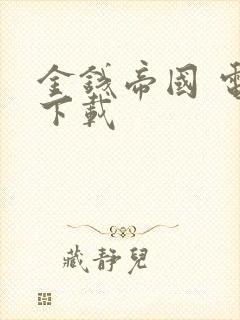 金錢帝國 電
下載
藏靜兒